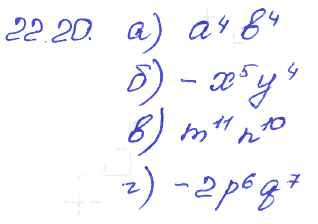 22.20. а) a⁴ b⁴
б) - x⁵ y⁴
в) m¹¹ n¹⁰
г) - 2p⁶ q⁷